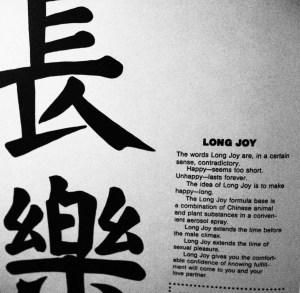 長
樂
LONG JOY
The words Long Joy are, in a certain
sense, contradictory.
Happy—seems too short.
Unhappy—lasts forever.
The idea of Long Joy is to make
happy—long.
The Long Joy formula base is
a combination of Chinese animal
and plant substances in a conven-
ient aerosol spray.
Long Joy extends the time before
the male climax.
Long Joy extends the time of
sexual pleasure.
Long Joy gives you the comfort-
able confidence of knowing fulfill-
ment will come to you and your
love partner.